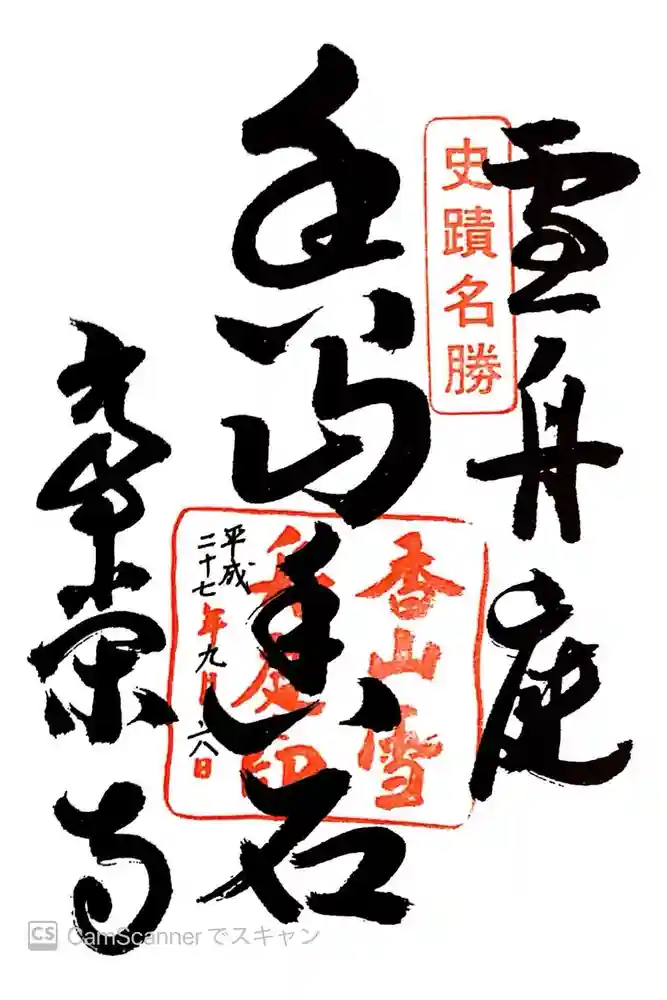 雪舟庭
史蹟名勝
香山雪
舟庭印
石
平成
二十七年九月日
常栄寺
CS CamScanner でスキャン